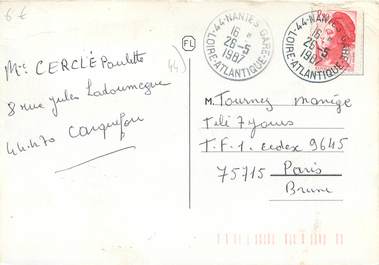 6€
44-NANTES-GARE
16 H
26-5
1987
LOIRE-ATLANTIQUE
44-NANTES-GARE
16 H
26-5
1987
LOIRE-ATLANTIQUE
FL
44
Mme CERCLÉ Paulette
8 rue Jules Ladoumegue
44470 Carquefou
M. Tournez manège
Télé 7 jours
T.F.1. cedex 9645
75715 Paris
Brune